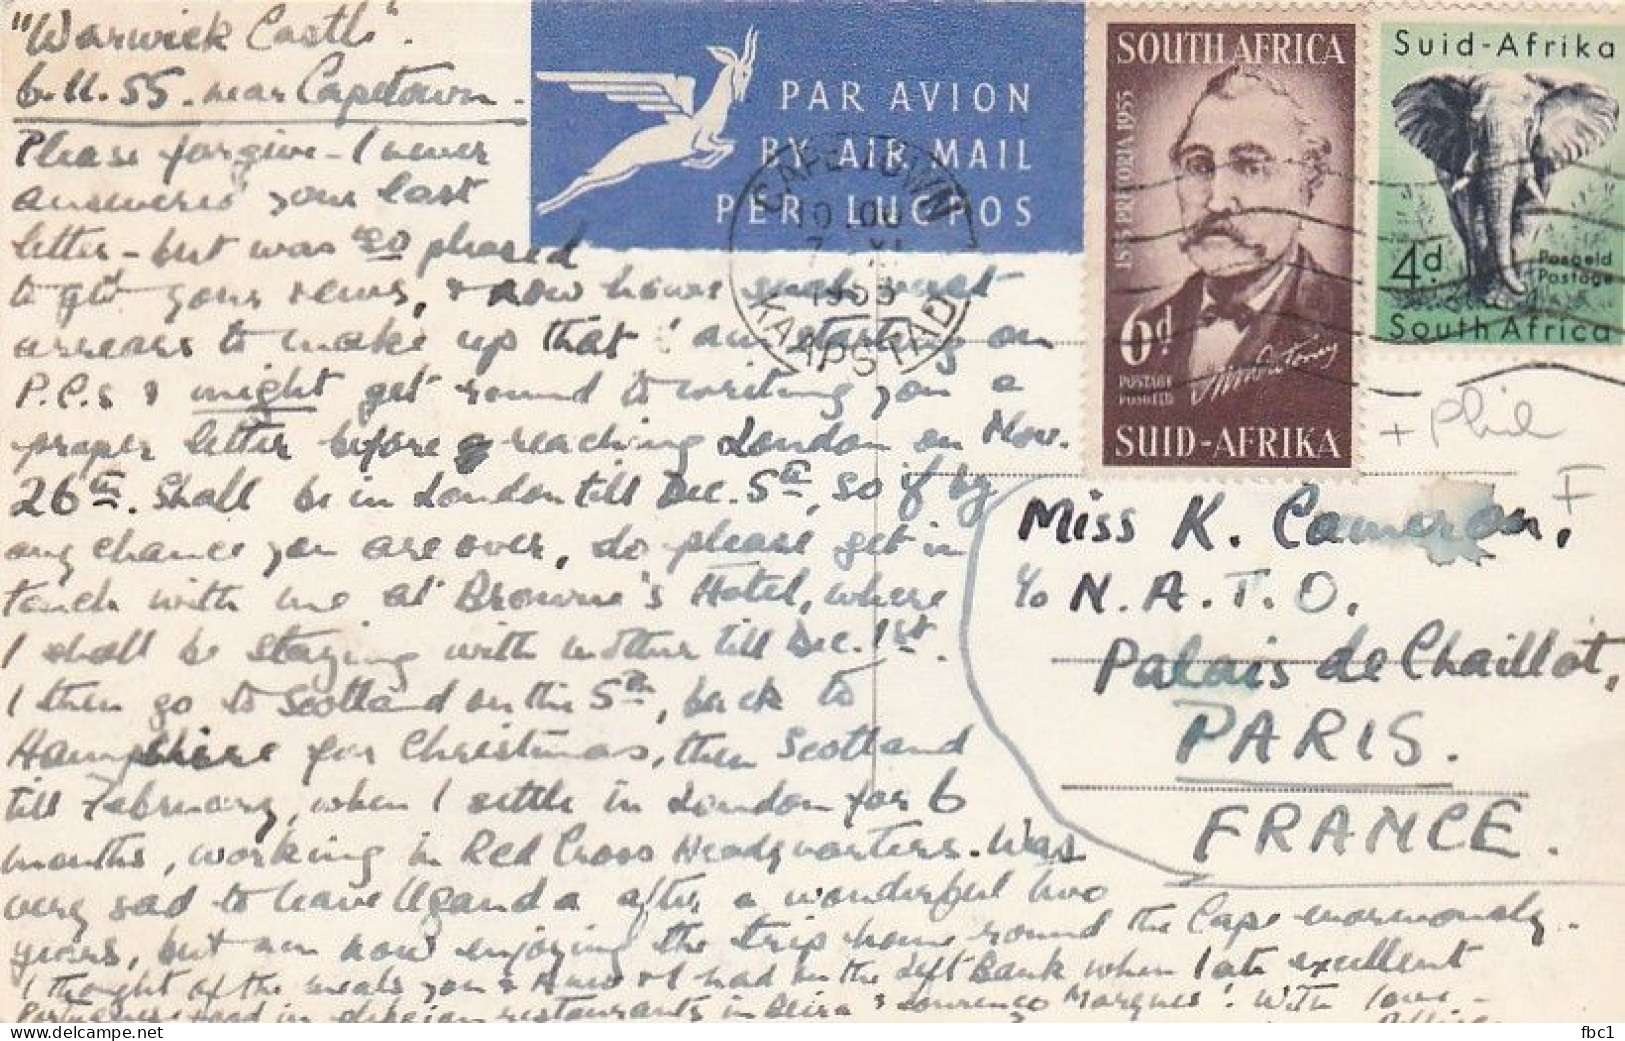 "Warwick Castle".
6.11.55. near Capetown.
Please forgive - I never
answered your last
letter - but was so pleased
to get your news, & now have such vast
arrears to make up that I am starting on
P.C.s & might get round to writing you a
proper letter before reaching London on Nov.
26th. Shall be in London till Dec. 5th, so if by
any chance you are over, do please get in
touch with me at Browne's Hotel, where
I shall be staying with mother till Dec. 1st.
I then go to Scotland on the 5th, back to
Hampshire for Christmas, then Scotland
till February, when I settle in London for 6
months, working in Red Cross Headquarters. Was
very sad to leave Uganda after a wonderful two
years, but am now enjoying the trip home round the Cape enormously.
I thought of the meals you & & I had on the Left Bank when I ate excellent
Portuguese food in restaurants in Beira & Lourenço Marques! With love -
PAR AVION
BY AIR MAIL
PER LUGPOS
CAPE TOWN
10 00
7 XI
1955
KAAPSTAD
SOUTH AFRICA
1855 PRETORIA 1955
6d
POSTAGE
POSGELD
SUID-AFRIKA
Suid-Afrika
4d.
Posgeld
Postage
South Africa
+ Phil
F
Miss K. Cameron,
c/o N.A.T.O.
Palais de Chaillot,
PARIS.
FRANCE.
www.delcampe.net
fbc1